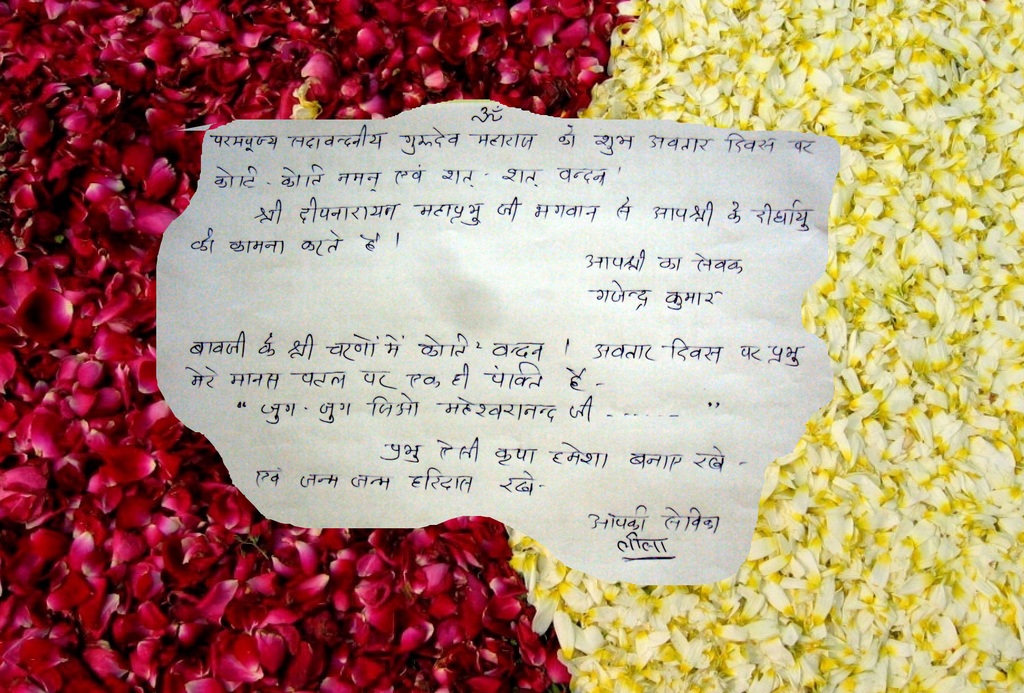 ॐ
परमपूज्य सदावन्दनीय गुरूदेव महाराज को शुभ अवतार दिवस पर
कोटि - कोटि नमन् एवं शत् - शत् वन्दन !
श्री दीपनारायन महाप्रभु जी भगवान से आपश्री के दीर्घायु
की कामना करते है ।
आपश्री का सेवक
गजेन्द्र कुमार
बावजी के श्री चरणों में कोटि - वन्दन । अवतार दिवस पर प्रभु
मेरे मानस पटल पर एक ही पंक्ति है -
" जुग - जुग जिओ महेश्वरानन्द जी - - - - - - "
प्रभु ऐसी कृपा हमेशा बनाए रखे -
एवं जन्म जन्म हरिदास रखे -
आपकी सेविका
लीला